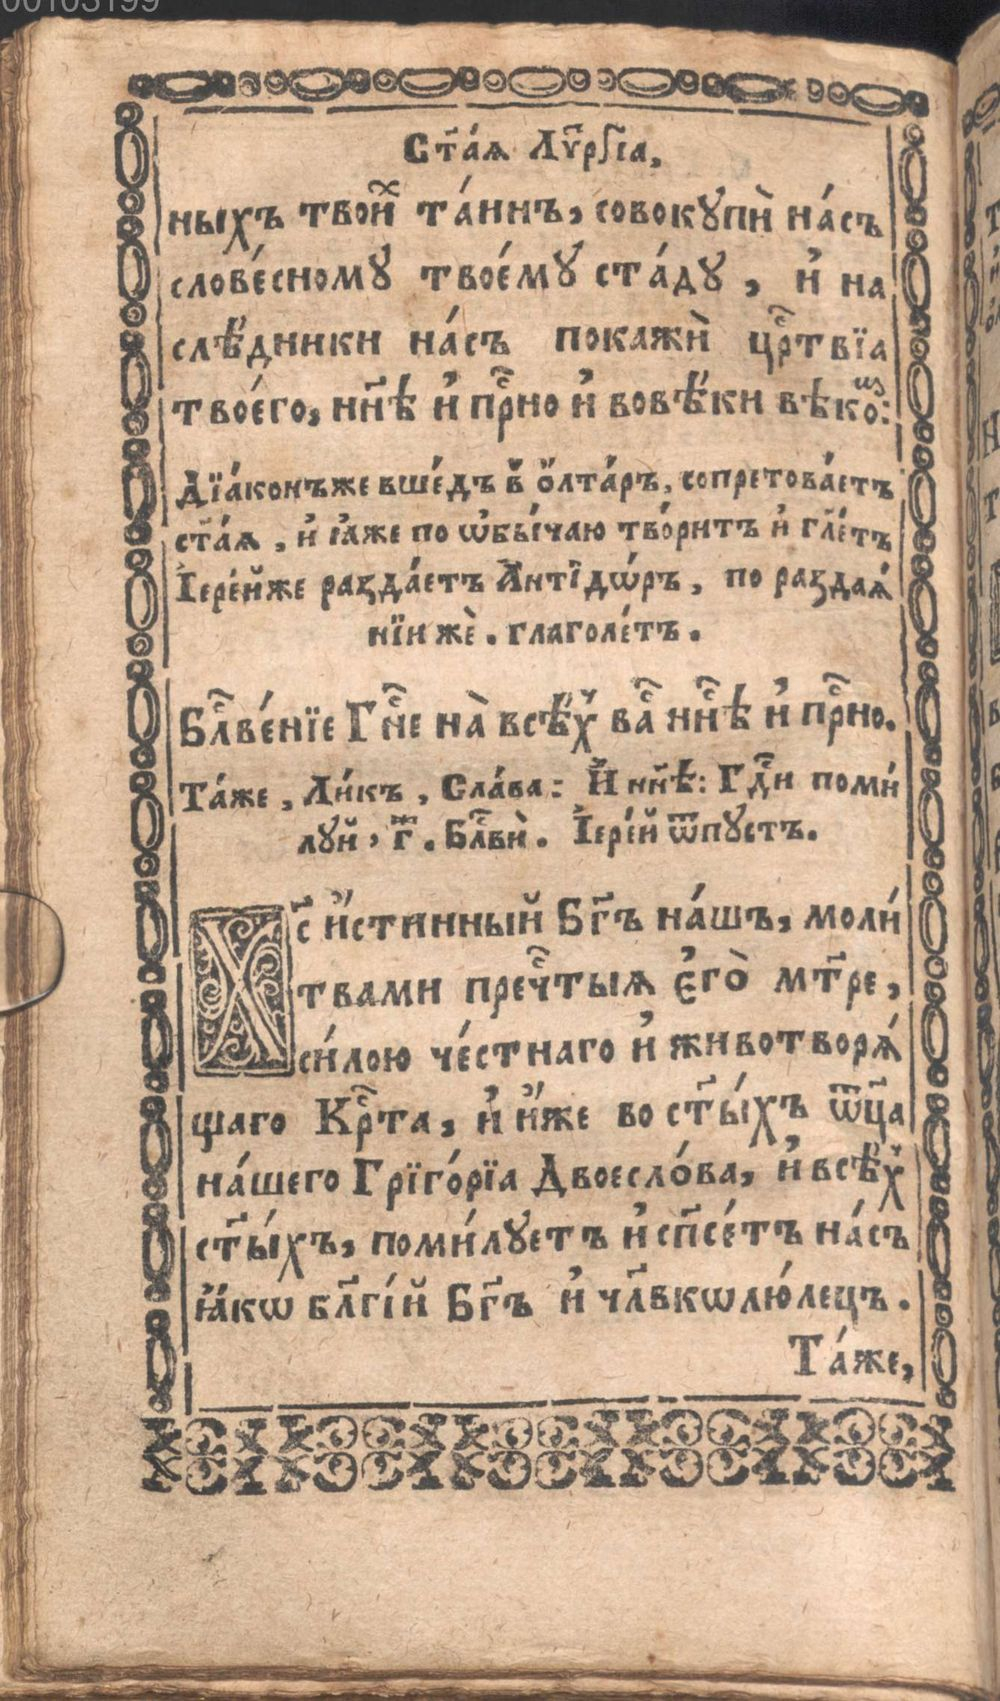 00103199
Ст҃а́ѧ Лѵ҃рґїа,
ныхъ твои҆̑ та́инъ, совокꙋпѝ на́съ
слове́сномꙋ твоє́мꙋ ста́дꙋ, и҆ на
слѣ́дники на́съ покажѝ цр҇твїа
твоє́го, нн҃ѣ и҆ пр҇но и҆ вовѣ́ки вѣкѡ́:
Дїа́конъже вше́дъ в̾ ѻ҆лта́ръ, сопретова́етъ
ст҃а́ѧ, и҆ ꙗ҆́же по ѡ҆бы́чаю тво́ритъ и҆ гл҃е́тъ
І҆ере́йже раꙁда́етъ А҆нтїдѡ́ръ, по раꙁдаѧ́
нїи жѐ. глаголе́тъ.
Бл҇ве́нїе Гн҇е на̀ всѣ́х̾ ва҇ нн҃ѣ и҆ пр҇но.
Та́же, Ли́къ, Сла́ва: И҆ нн҃ѣ: Гд҇и поми́
лꙋй, г҃. Бл҇вѝ. І҆ере́й ѿпꙋстъ.
Хс҃ и҆́стинный Бг҃ъ на́шъ, моли́
твами преч҇тыѧ є҆гѡ̀ мт҃ре,
си́лою че́стнаго и҆ животворѧ́
щаго Кр҇та, и҆ и҆́же во ст҃ы́хъ ѿц҃а
на́шего Грїго́рїа Двоесло́ва, и҆ всѣ́х̾
ст҃ы́хъ, поми́лꙋетъ и҆ сп҃се́тъ на́съ
ꙗ҆́кѡ бл҃гі́й Бг҃ъ и҆ чл҃вкѡлю́лецъ.
Та́же,